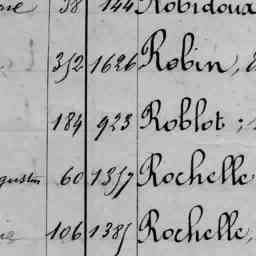 38 144 Robidoux
352 1626 Robin,
184 923 Roblot ;
gustin 60 1357 Rochelle
106 1385 Rochelle,